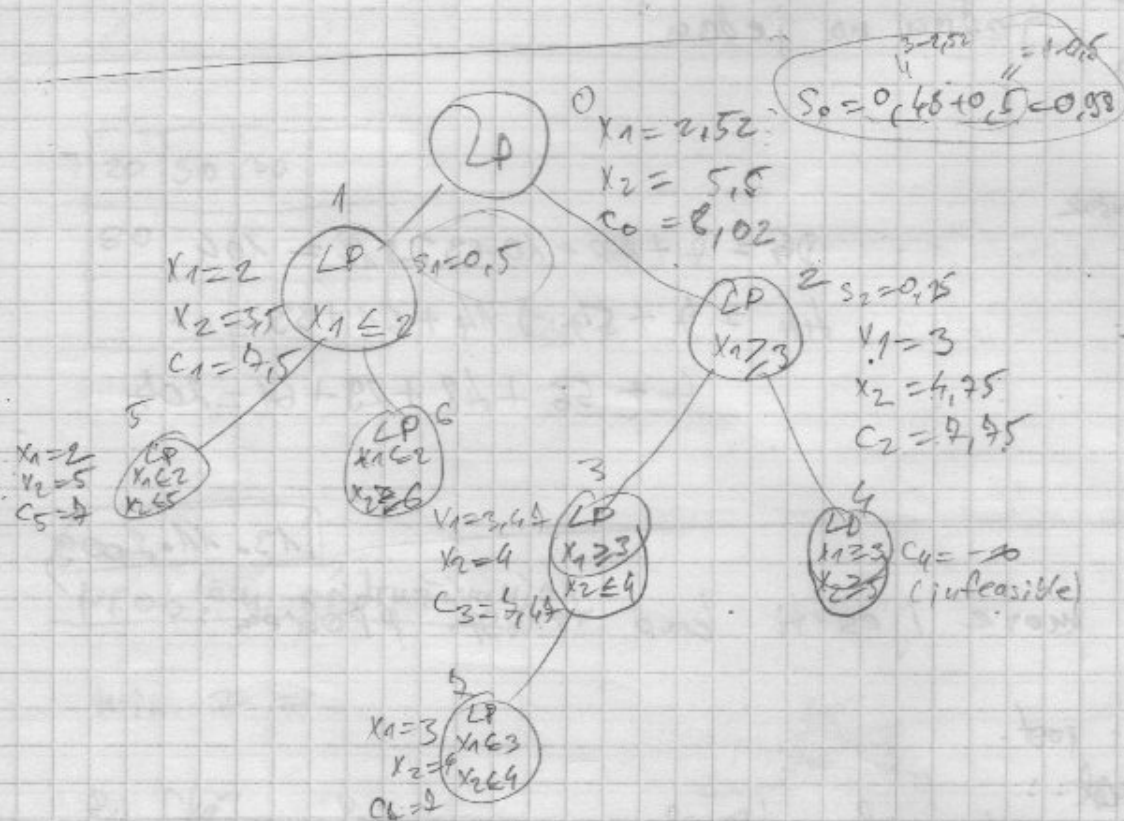 3-2,52
= 1-0,5
S₀ = 0,48+0,5=0,98
0
LP
x1 = 2,52
x2 = 5,5
c0 = 8,02
1
LP
x1 ≤ 2
s1=0,5
x1=2
x2=3,5
c1=7,5
2
LP
x1 ≥ 3
s2=0,25
x1=3
x2=4,75
c2=7,75
5
LP
x1≤2
x2≤5
x1=2
x2=5
c5=7
6
LP
x1≤2
x2≥6
3
LP
x1≥3
x2≤4
x1=3,47
x2=4
c3=7,47
4
LP
x1≥3
x2≥5
c4= -∞
(infeasible)
7
LP
x1≤3
x2≤4
x1=3
x2=4